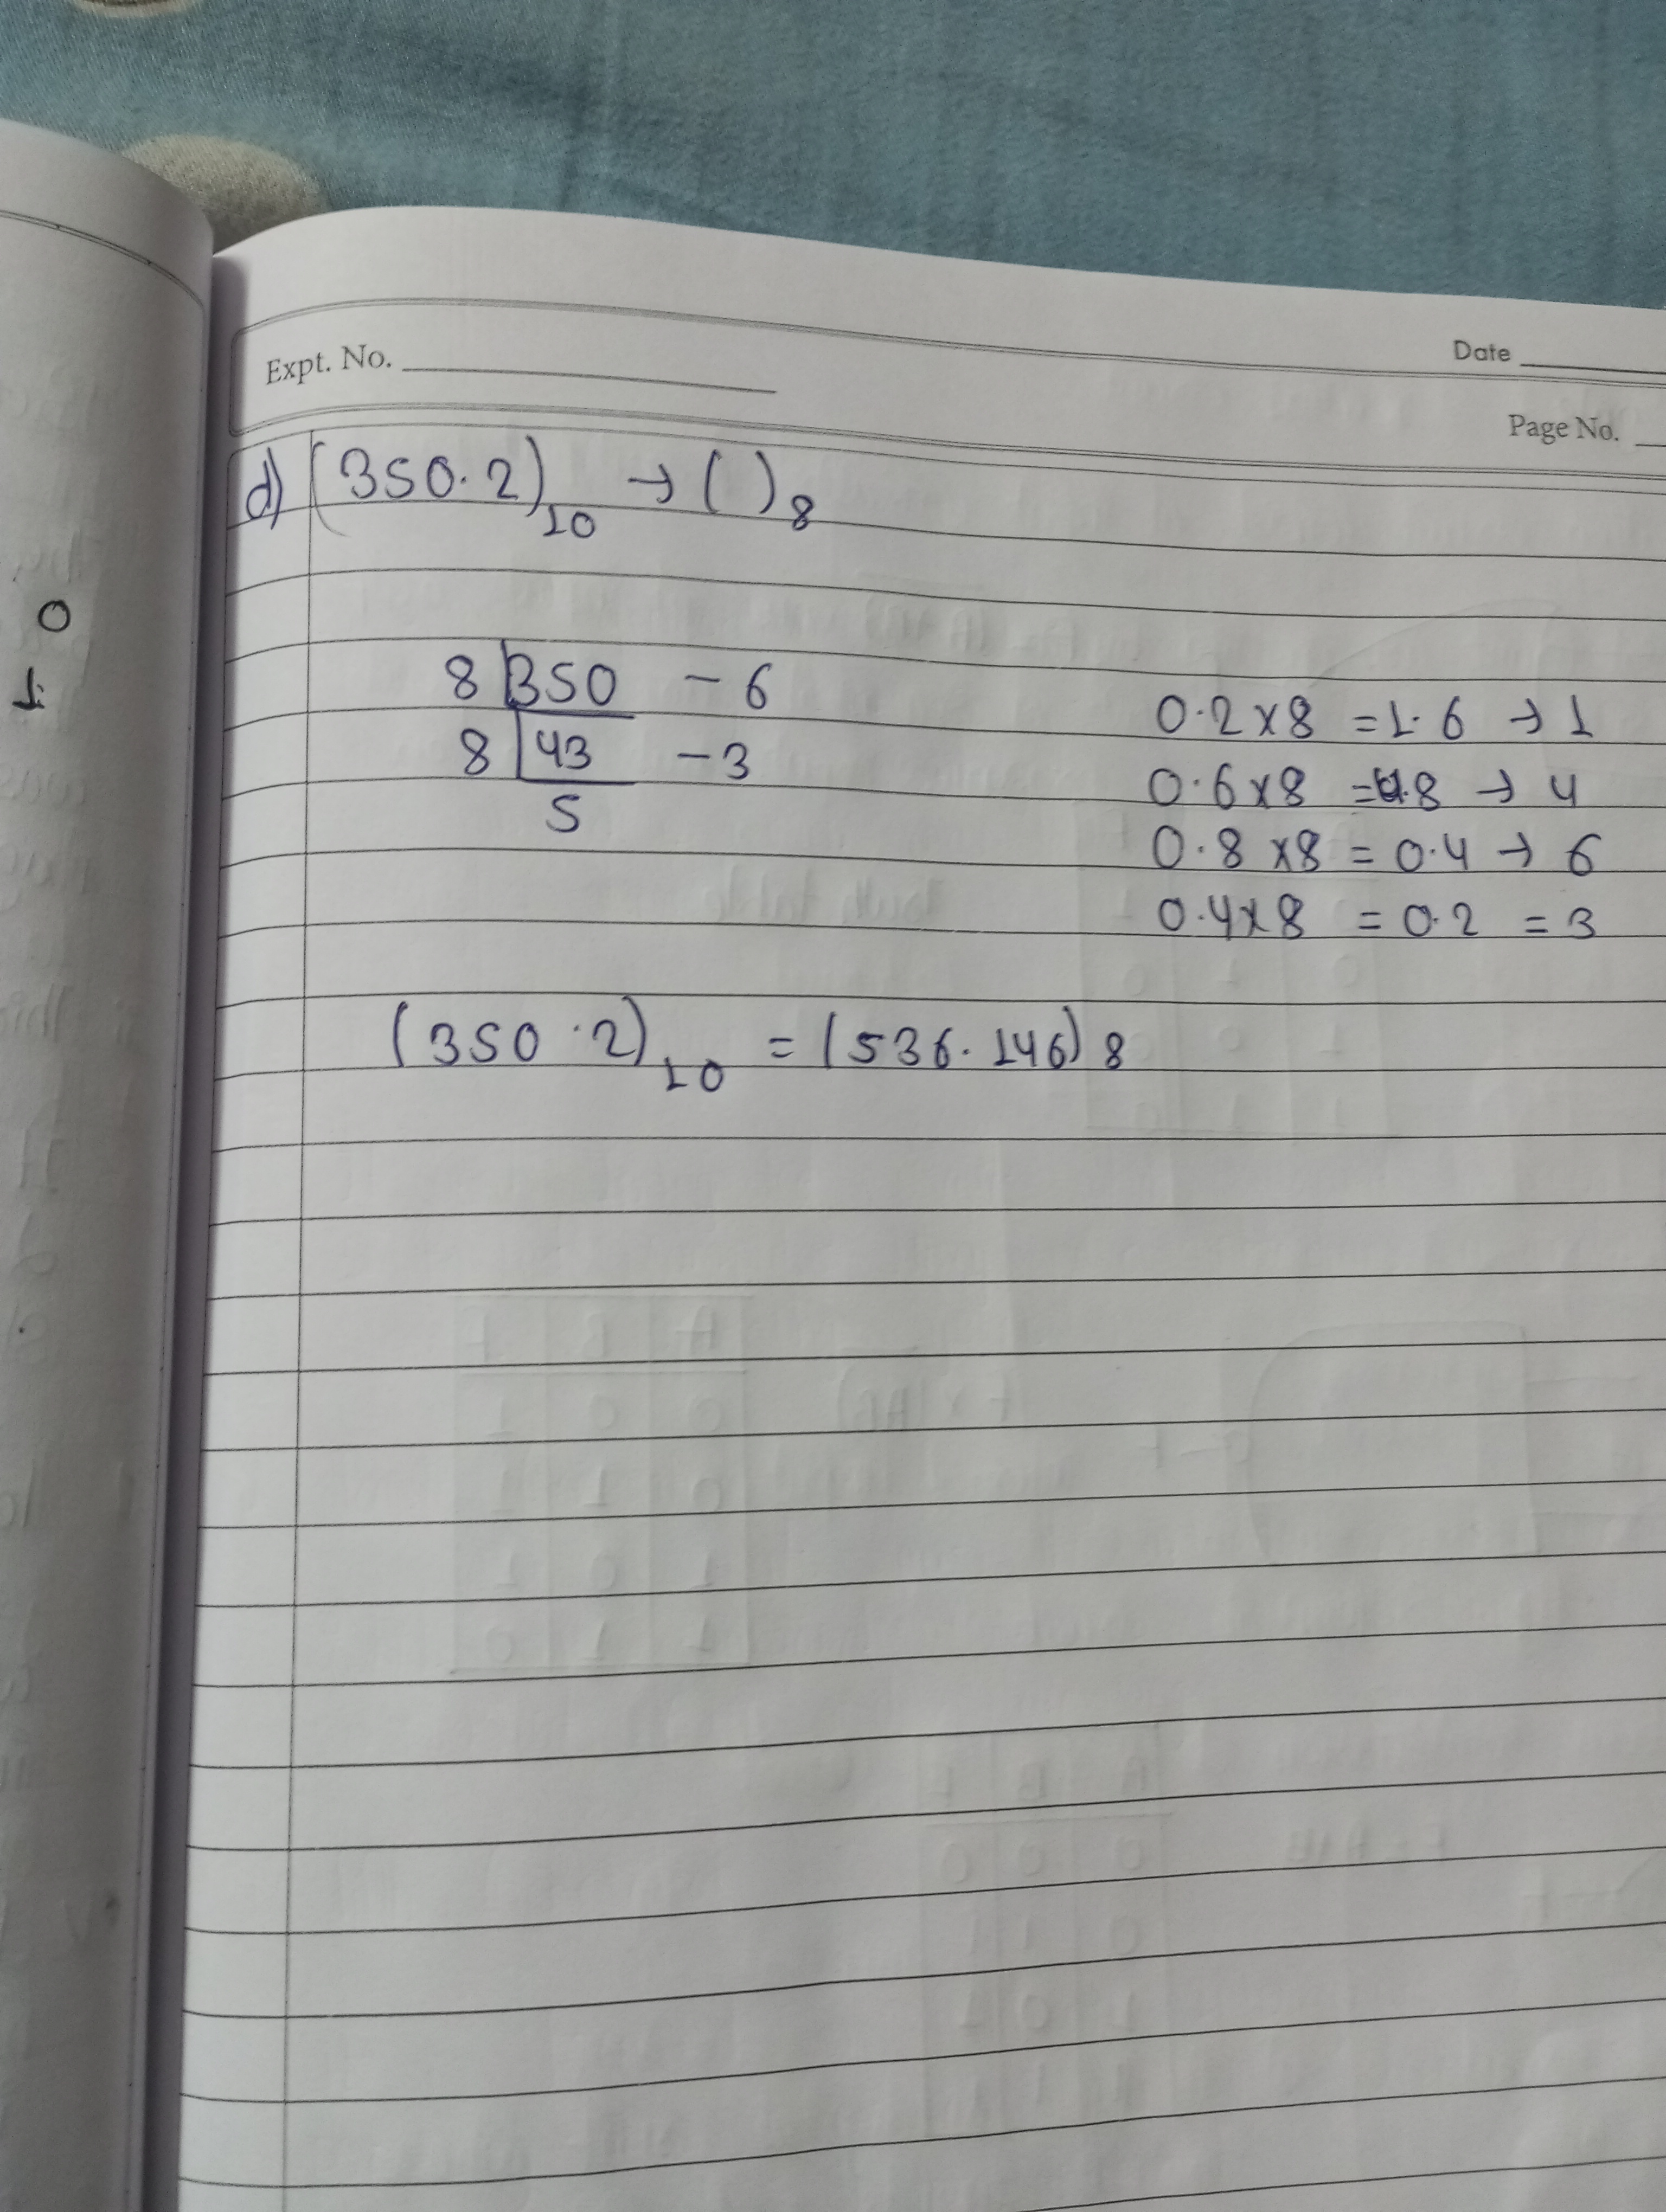 Expt. No.
Date
Page No.
d) (350.2)10 → ( )8
0
1
8 350 - 6
8 43 - 3
5
0.2 x 8 = 1.6 → 1
0.6 x 8 = 4.8 → 4
0.8 x 8 = 0.4 → 6
0.4 x 8 = 0.2 = 3
(350.2)10 = (536.146)8